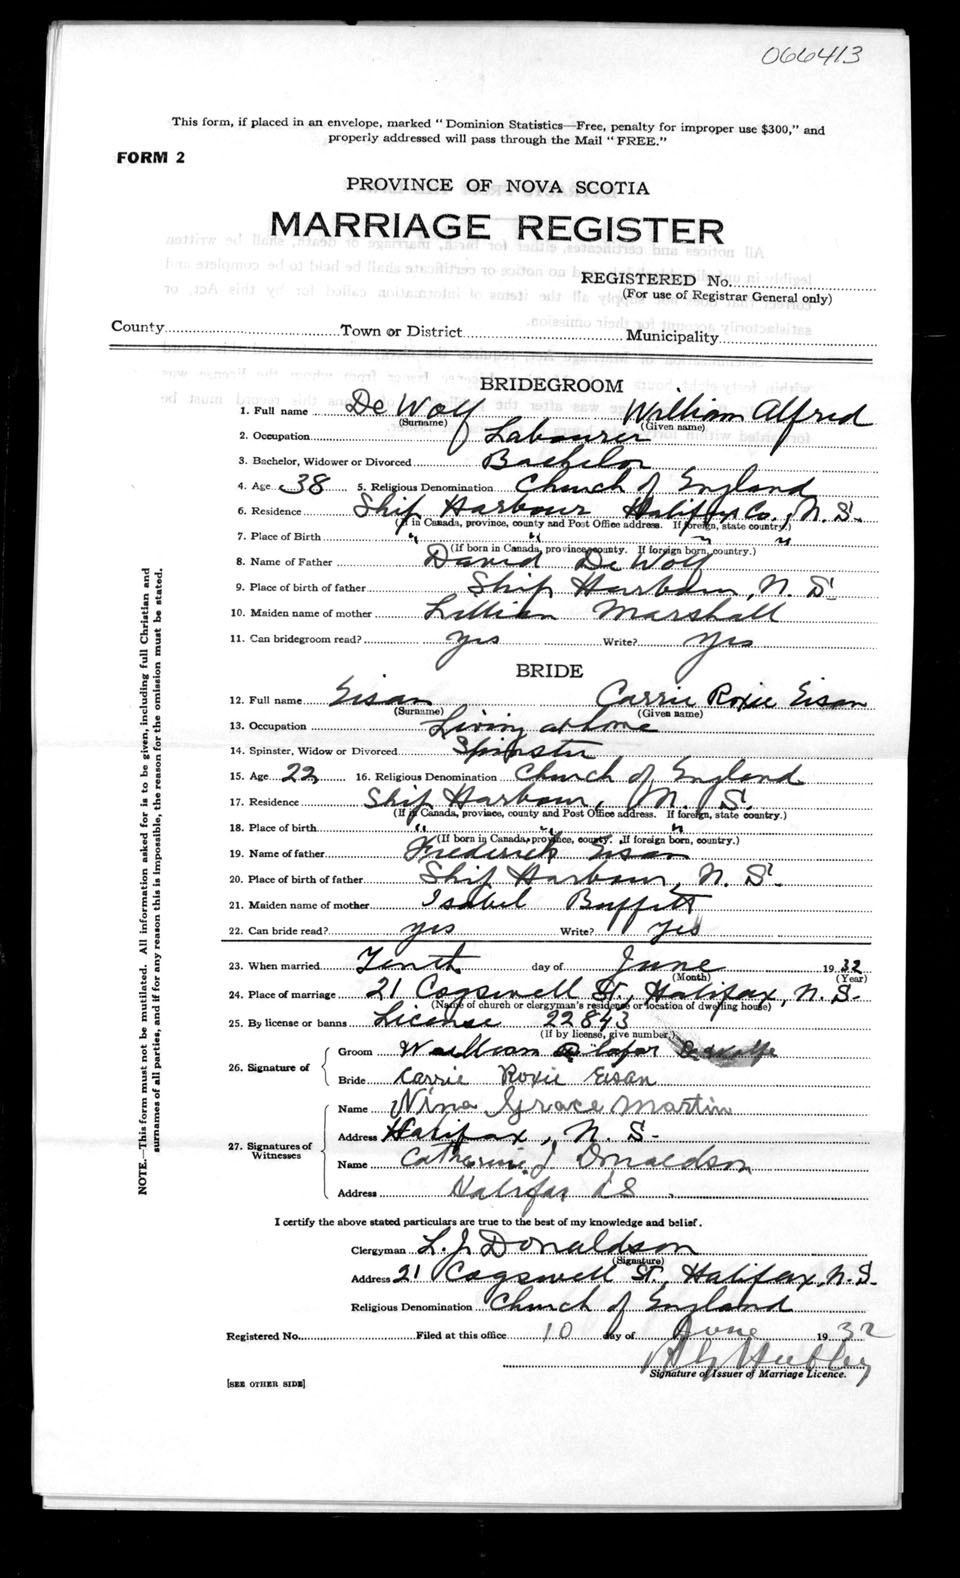 066413
This form, if placed in an envelope, marked " Dominion Statistics—Free, penalty for improper use $300," and
properly addressed will pass through the Mail " FREE."
FORM 2
PROVINCE OF NOVA SCOTIA
MARRIAGE REGISTER
REGISTERED No.
(For use of Registrar General only)
County Town or District Municipality
BRIDEGROOM
1. Full name De Wolf William Alfred
(Surname) (Given name)
2. Occupation Labourer
3. Bachelor, Widower or Divorced Bachelor
4. Age 38 5. Religious Denomination Church of England
6. Residence Ship Harbour Halifax Co., N. S.
(If in Canada, province, county and Post Office address. If foreign, state country.)
7. Place of Birth " " " "
(If born in Canada, province, county. If foreign born, country.)
8. Name of Father David De Wolf
9. Place of birth of father Ship Harbour, N. S.
10. Maiden name of mother Lillian Marshall
11. Can bridegroom read? yes Write? yes
BRIDE
12. Full name Eisan Carrie Roxie Eisan
(Surname) (Given name)
13. Occupation Living at home
14. Spinster, Widow or Divorced Spinster
15. Age 22 16. Religious Denomination Church of England
17. Residence Ship Harbour, N. S.
(If in Canada, province, county and Post Office address. If foreign, state country.)
18. Place of birth " " "
(If born in Canada, province, county. If foreign born, country.)
19. Name of father Frederick Eisan
20. Place of birth of father Ship Harbour, N. S.
21. Maiden name of mother Isabel Buffett
22. Can bride read? yes Write? yes
23. When married Tenth day of June 1932
(Month) (Year)
24. Place of marriage 21 Cogswell St., Halifax, N. S.
(Name of church or clergyman's residence or location of dwelling house)
25. By license or banns License 22843
(If by license, give number.)
26. Signature of
Groom William
Bride Carrie Roxie Eisan
27. Signatures of Witnesses
Name Nina Grace Martin
Address Halifax, N. S.
Name Catherine J Donaldson
Address Halifax N S
I certify the above stated particulars are true to the best of my knowledge and belief.
Clergyman L. J. Donaldson
(Signature)
Address 21 Cogswell St., Halifax, N. S.
Religious Denomination Church of England
Registered No. Filed at this office 10 day of June 1932
Hubley
Signature of Issuer of Marriage Licence.
[SEE OTHER SIDE]
NOTE.—This form must not be mutilated. All information asked for is to be given, including full Christian and
surnames of all parties, and if for any reason this is impossible, the reason for the omission must be stated.